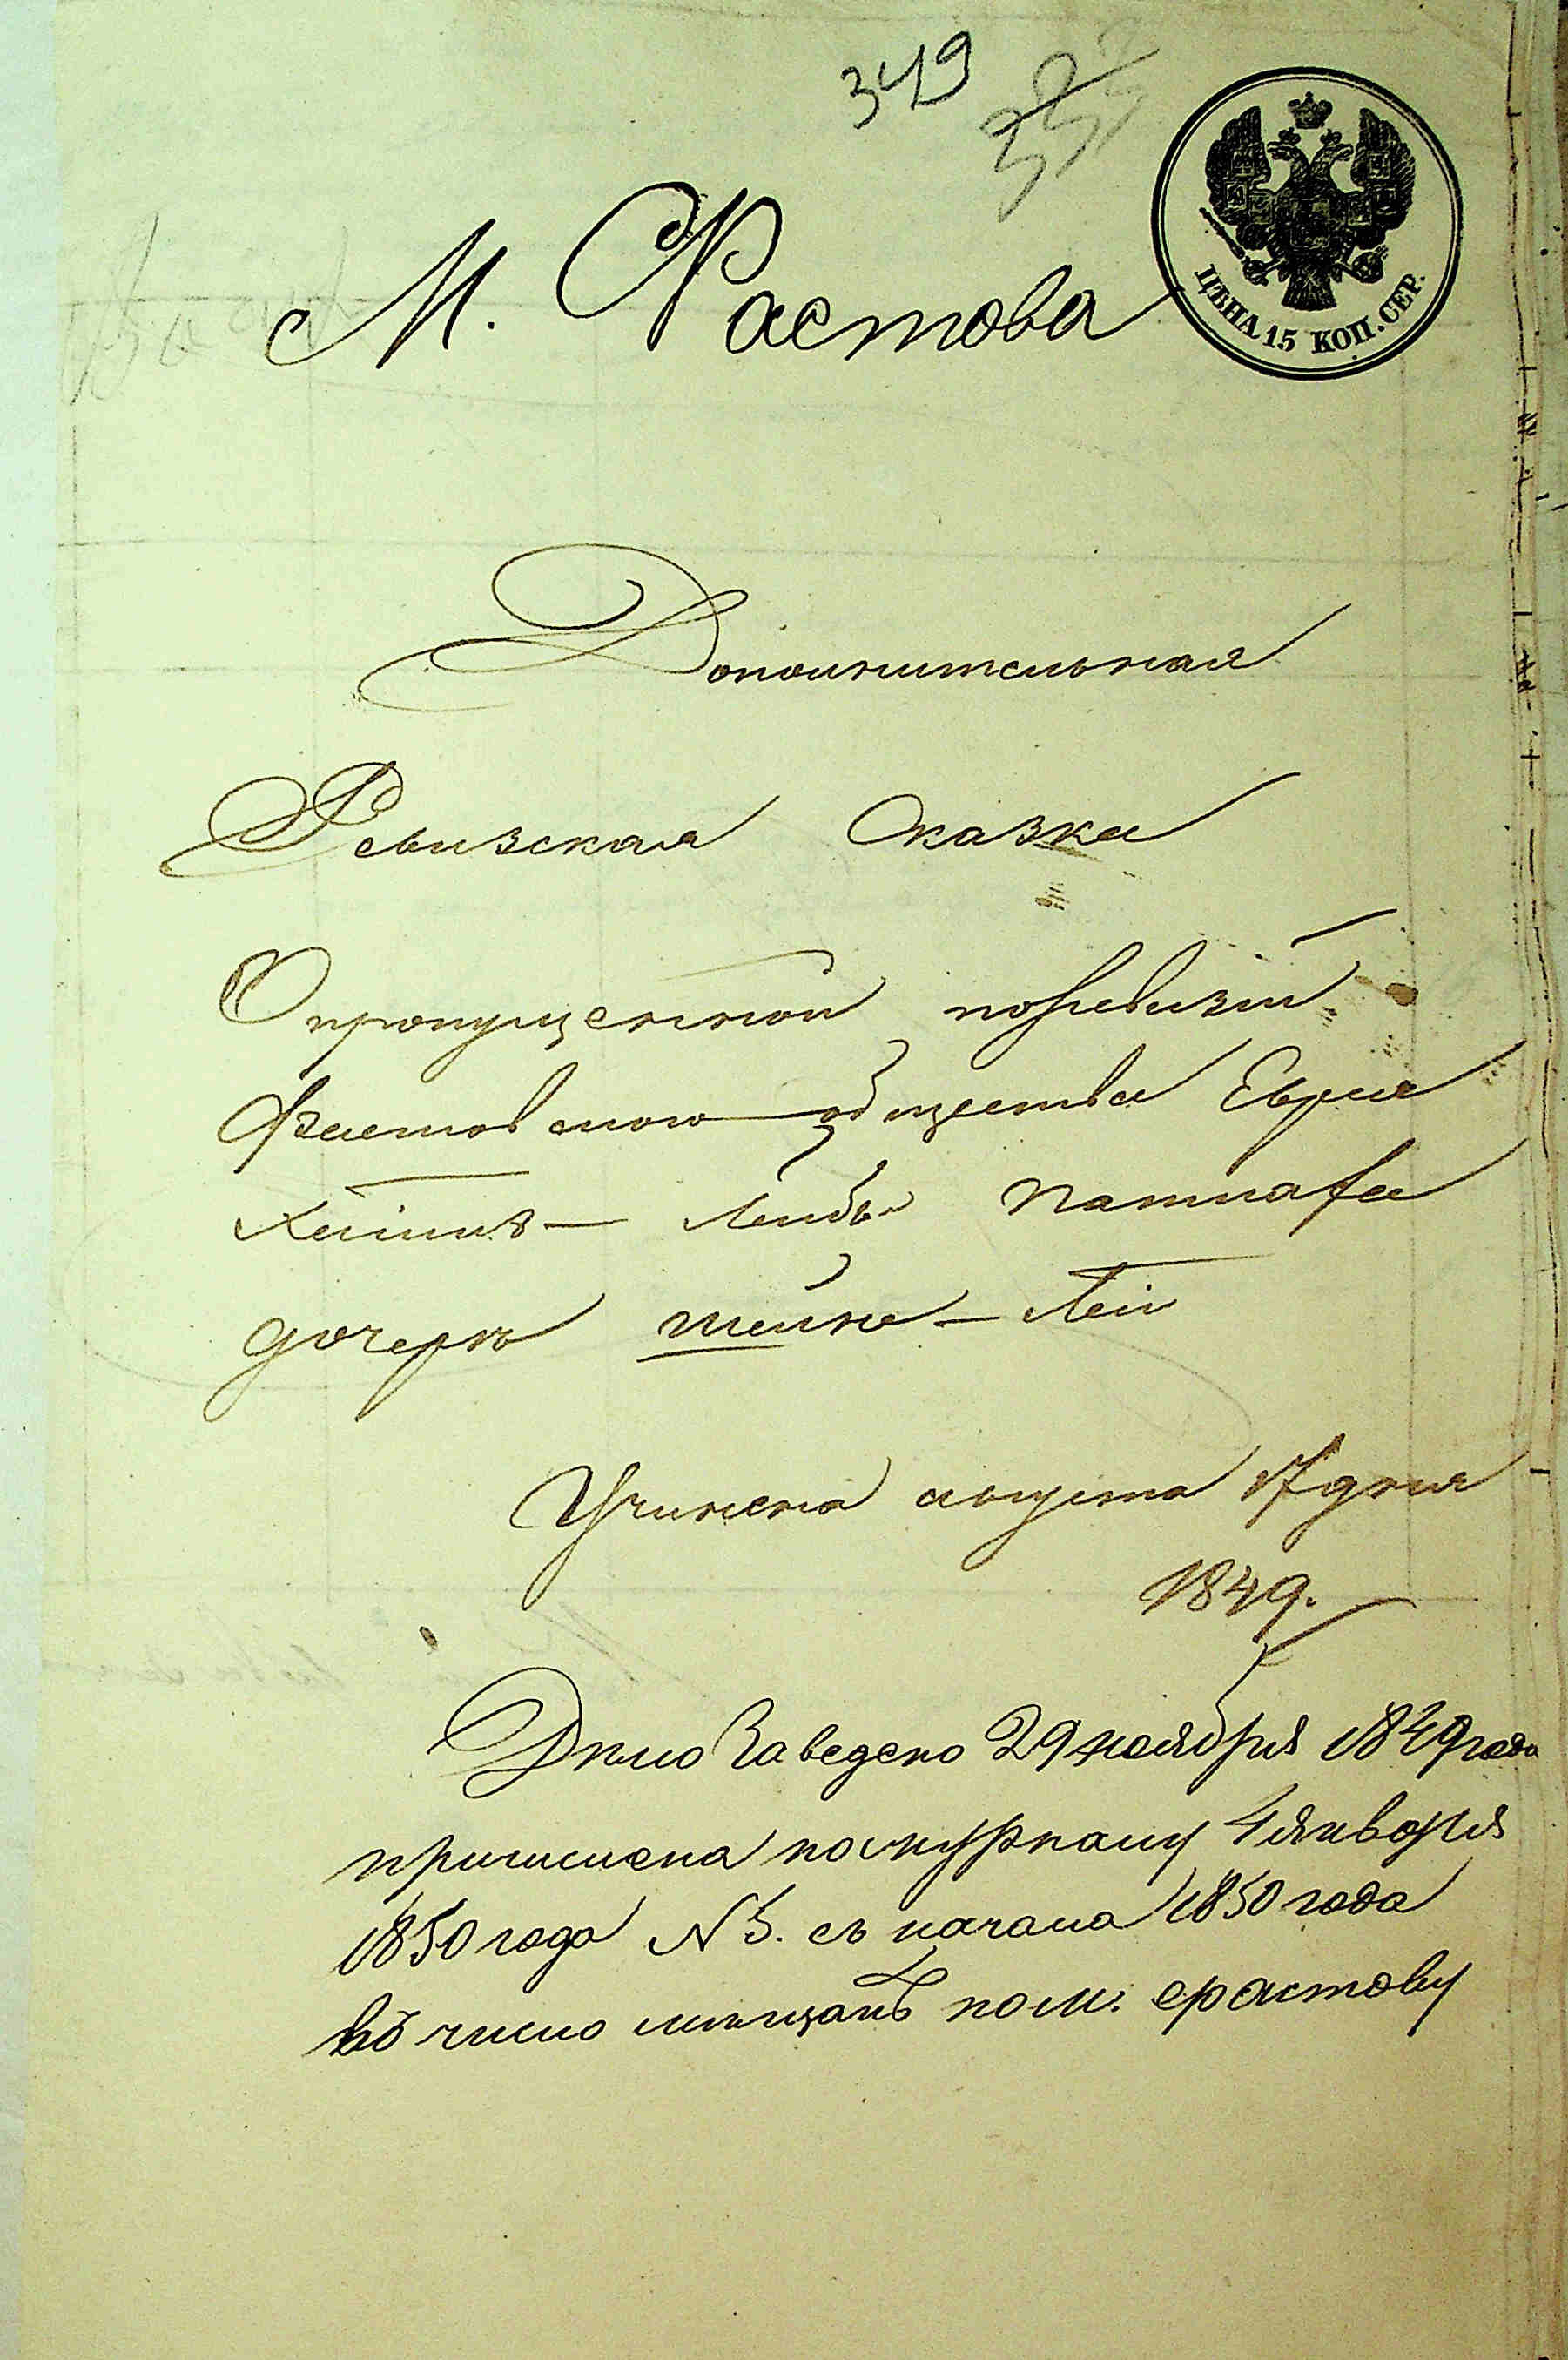 349
ЦѢНА 15 КОП. СЕР.
М. Фастова
Дополнительная
Ревизская Сказка
О пропущенной по ревизіи
Фастовского общества Еврея
Хаима — Лейбы
дочери Шейне — Леи
Учинена августа 17 дня
1849.
Дѣло Заведено 29 ноября 1849 года
причислена по журналу 4 января
1850 года N 5. съ начала 1850 года
въ число мѣщанъ по м. Фастову